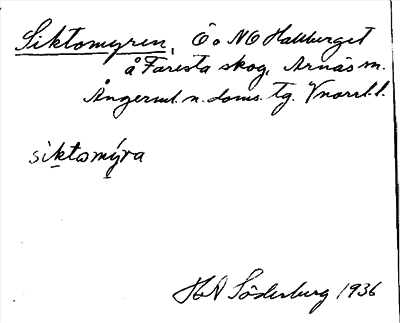 Siktomyren, Ö o NO Hallberget
å Faresta skog, Arnäs sn.
Ångerml. n. doms. tg. Vnorrl. l.
siktomýra
HA Söderberg 1936